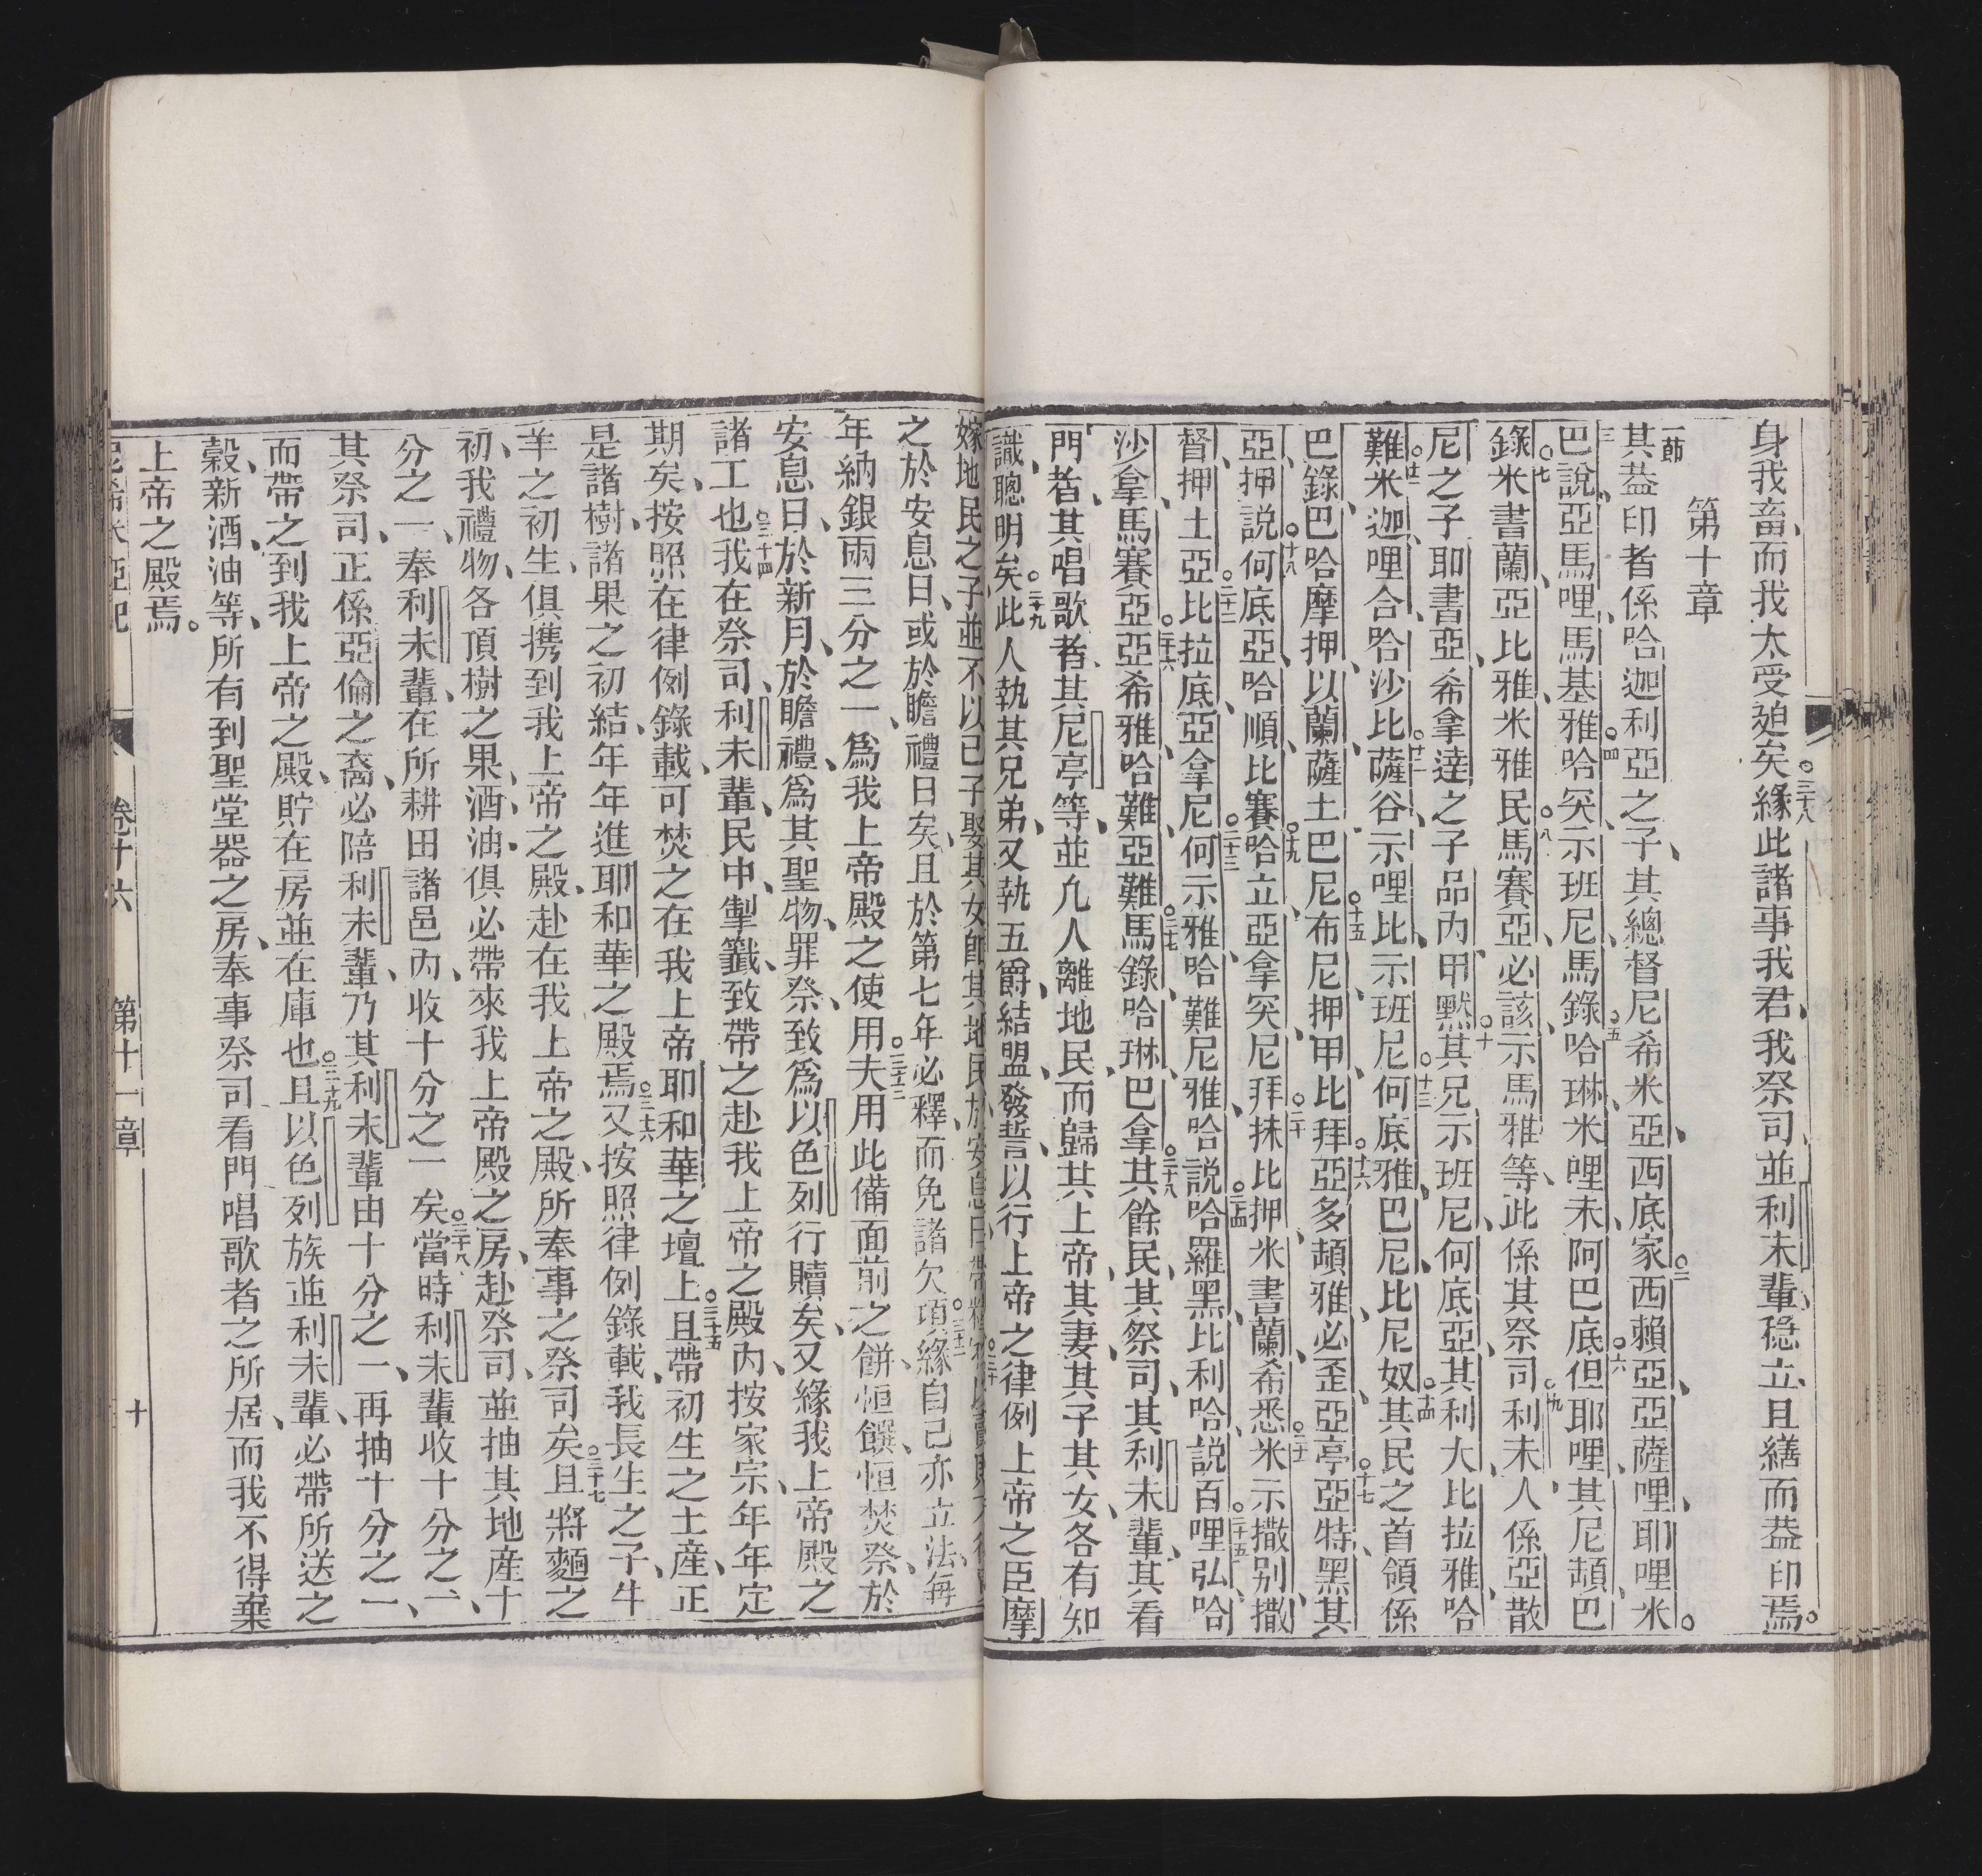 身我畜、而我太受廹矣。三十八緣此諸事我君、我祭司、並利未輩、稳立、且繕而葢印焉。
第十章
一節其葢印者係哈迦利亞之子、其總督尼希米亞、西底家。二西賴亞、亞薩哩、耶哩米。
三巴說、亞馬哩、馬基雅。四哈突、示班尼、馬錄。五哈琳、米哩末、阿巴底。六但耶哩、其尼頡、巴
錄。七米書蘭、亞比雅、米雅民。八馬賽亞、必該、示馬雅等、此係其祭司。九利未人、係亞散
尼之子耶書亞、希拿達之子品內、甲黙。十其兄示班尼、何底亞、其利大、比拉雅、哈
難。十一米迦、哩合、哈沙比。十二薩谷、示哩比、示班尼。十三何底雅、巴尼、比尼奴。十四其民之首領係
巴錄、巴哈摩押、以蘭、薩土、巴尼。十五布尼、押甲、比拜。十六亞多頡雅、必歪、亞亭。十七亞特、黑其
亞、押說。十八何底亞、哈順、比賽。十九哈立、亞拿突、尼拜。二十抹比押、米書蘭、希悉。二十一米示撒别、撒
督、押土亞。二十二比拉底亞、拿尼。二十三何示雅、哈難尼雅、哈說。二十四哈羅黑、比利哈、說百。二十五哩弘、哈
沙拿、馬賽亞。二十六亞希雅、哈難、亞難。二十七馬錄、哈琳、巴拿。二十八其餘民、其祭司、其利未輩、其看
門者、其唱歌者、其尼亭等、並凢人離地民、而歸其上帝、其妻、其子、其女、各有知
識、聰明矣。二十九此人執其兄弟、又執五爵、結盟、發誓、以行上帝之律例、上帝之臣摩
嫁地民之子、並不以己子娶其女
之於安息日、或於瞻禮日矣、且於第七年必釋、而免諸欠項。三十二緣自己亦立法、每
年納銀兩三分之一、爲我上帝殿之使用。三十三夫用此備面前之餅、恒饌、恒焚祭、於
安息日、於新月、於瞻禮、爲其聖物、罪祭、致爲以色列行贖矣、又緣我上帝殿之
諸工也。三十四我在祭司、利未輩、民中、掣籖、致帶之赴我上帝之殿內、按家宗、年年定
期矣、按照在律例錄載、可焚之在我上帝耶和華之壇上。三十五且帶初生之土產、正
是諸樹諸果之初結、年年進耶和華之殿焉。三十六又按照律例錄載、我長生之子、牛
羊之初生、俱携到我上帝之殿、赴在我上帝之殿、所奉事之祭司矣。三十七且將麵之
初、我禮物、各項樹之果、酒、油、俱必帶來我上帝殿之房、赴祭司、並抽其地產十
分之一、奉利未輩、在所耕田諸邑內、收十分之一矣。三十八當時利未輩收十分之一、
其祭司正係亞倫之裔、必陪利未輩、乃其利未輩由十分之一、再抽十分之一、
而帶之到我上帝之殿、貯在房並在庫也。三十九且以色列族並利未輩、必帶所送之
穀、新酒、油等、所有到聖堂器之房、奉事祭司看門唱歌者之所居、而我不得棄
上帝之殿焉。
尼希米亞記 卷十六 第十一章 十